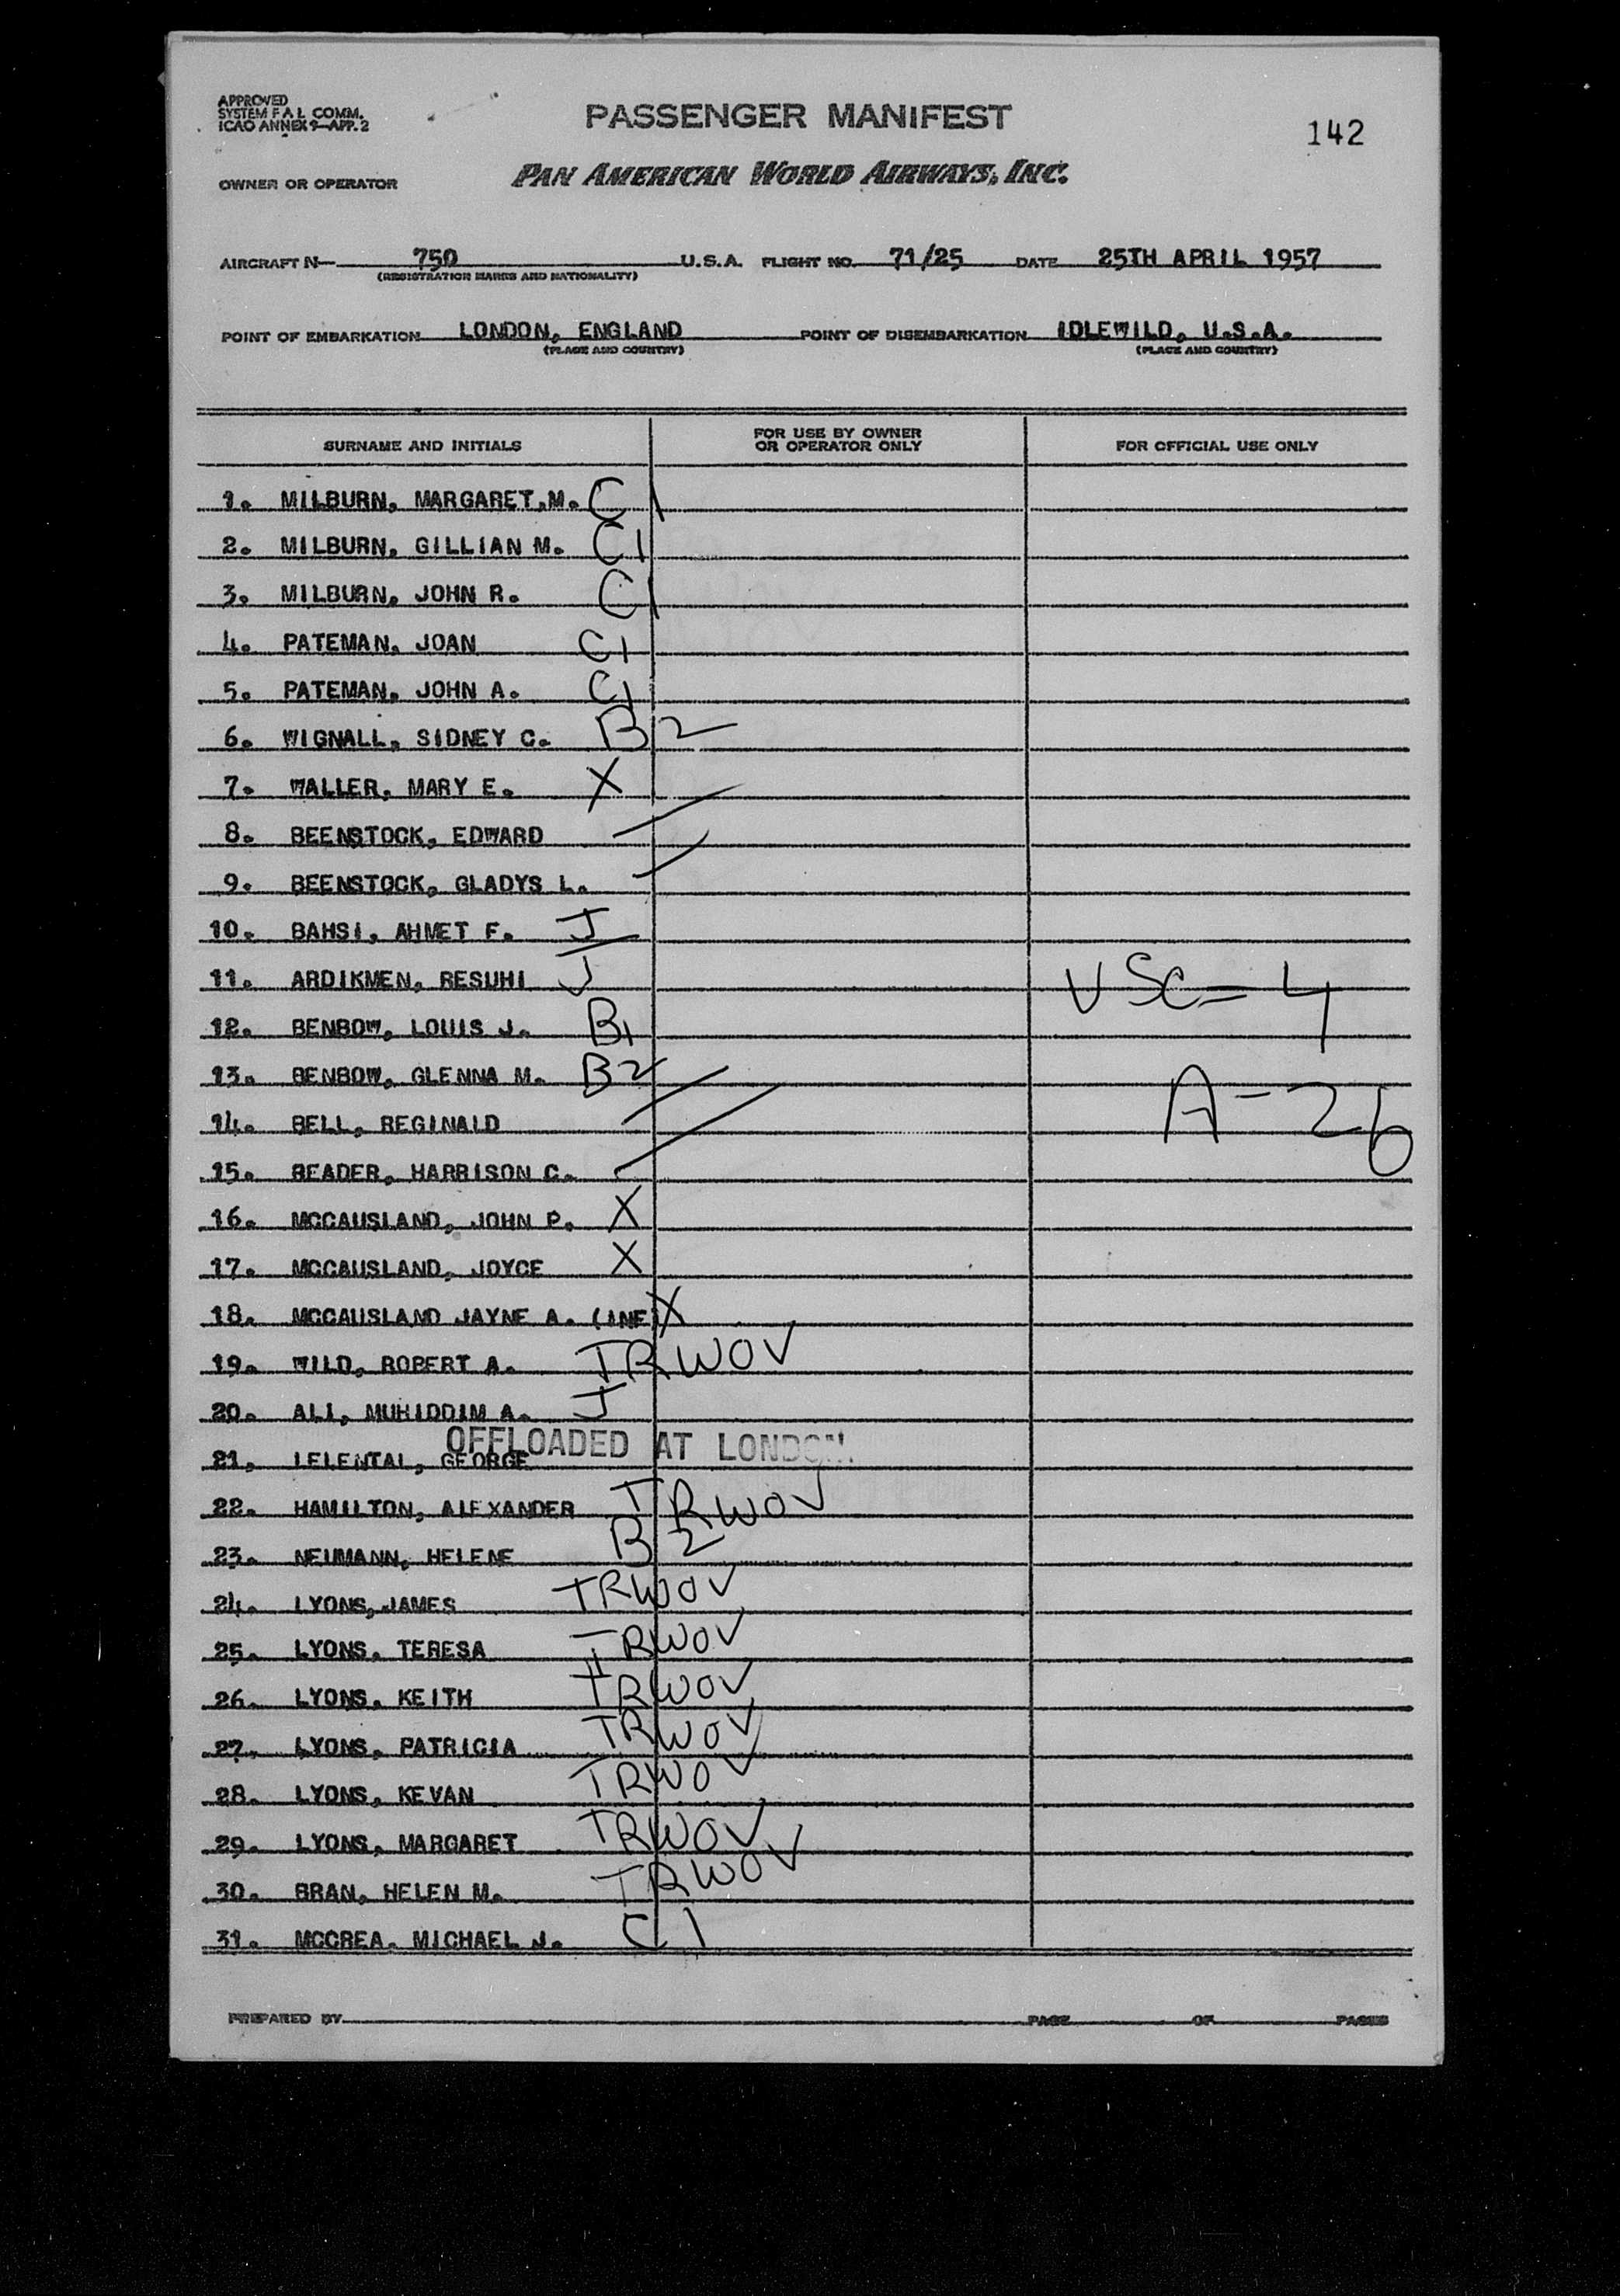 APPROVED
SYSTEM F A L COMM.
ICAO ANNEX 9—APP. 2
PASSENGER MANIFEST
142
OWNER OR OPERATOR
PAN AMERICAN WORLD AIRWAYS, INC.
AIRCRAFT N— 750 U.S.A. FLIGHT NO. 71/25 DATE 25TH APRIL 1957
(REGISTRATION MARKS AND NATIONALITY)
POINT OF EMBARKATION LONDON, ENGLAND POINT OF DISEMBARKATION IDLEWILD, U.S.A.
(PLACE AND COUNTRY) (PLACE AND COUNTRY)
SURNAME AND INITIALS
FOR USE BY OWNER
OR OPERATOR ONLY
FOR OFFICIAL USE ONLY
1. MILBURN, MARGARET,M. C1
2. MILBURN, GILLIAN M. C1
3. MILBURN, JOHN R. C1
4. PATEMAN, JOAN C1
5. PATEMAN, JOHN A. C1
6. WIGNALL, SIDNEY C. B2
7. WALLER, MARY E. X
8. BEENSTOCK, EDWARD
9. BEENSTOCK, GLADYS L.
10. BAHSI, AHMET F. J
11. ARDIKMEN, RESUHI J
USC=4
12. BENBOW, LOUIS J. B1
13. BENBOW, GLENNA M. B2
A-26
14. BELL, REGINALD
15. READER, HARRISON C.
16. MCCAUSLAND, JOHN P. X
17. MCCAUSLAND, JOYCE X
18. MCCAUSLAND JAYNE A. (INF) X
19. WILD, ROBERT A. TRWOV
20. ALI, MUHIDDIM A. J
OFFLOADED AT LONDON
21. LELENTAL, GEORGE
22. HAMILTON, ALEXANDER TRWOV
23. NEUMANN, HELENE B2
24. LYONS, JAMES TRWOV
25. LYONS, TERESA TRWOV
26. LYONS, KEITH TRWOV
27. LYONS, PATRICIA TRWOV
28. LYONS, KEVAN TRWOV
29. LYONS, MARGARET TRWOV
30. BRAN, HELEN M. TRWOV
31. MCCREA, MICHAEL J. C1
PREPARED BY PAGE OF PAGES